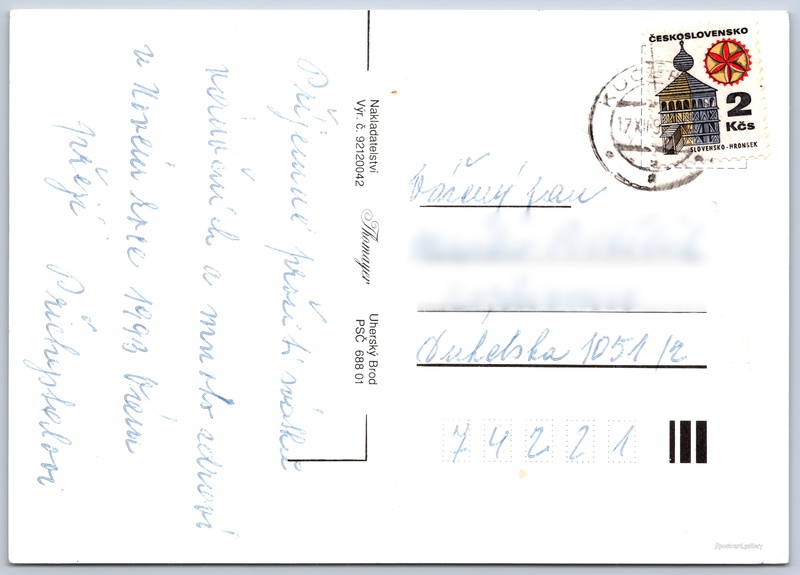 Příjemné prožití svátků
vánočních a mnoho zdraví
v Novém roce 1993 Vám
přejí Přichystalovi
Nakladatelství
Výr. č. 92120042
Thomayer
Uherský Brod
PSČ 688 01
ČESKOSLOVENSKO
2
Kčs
SLOVENSKO-HRONSEK
Vážený pan
Dukelská 1051/2
74221